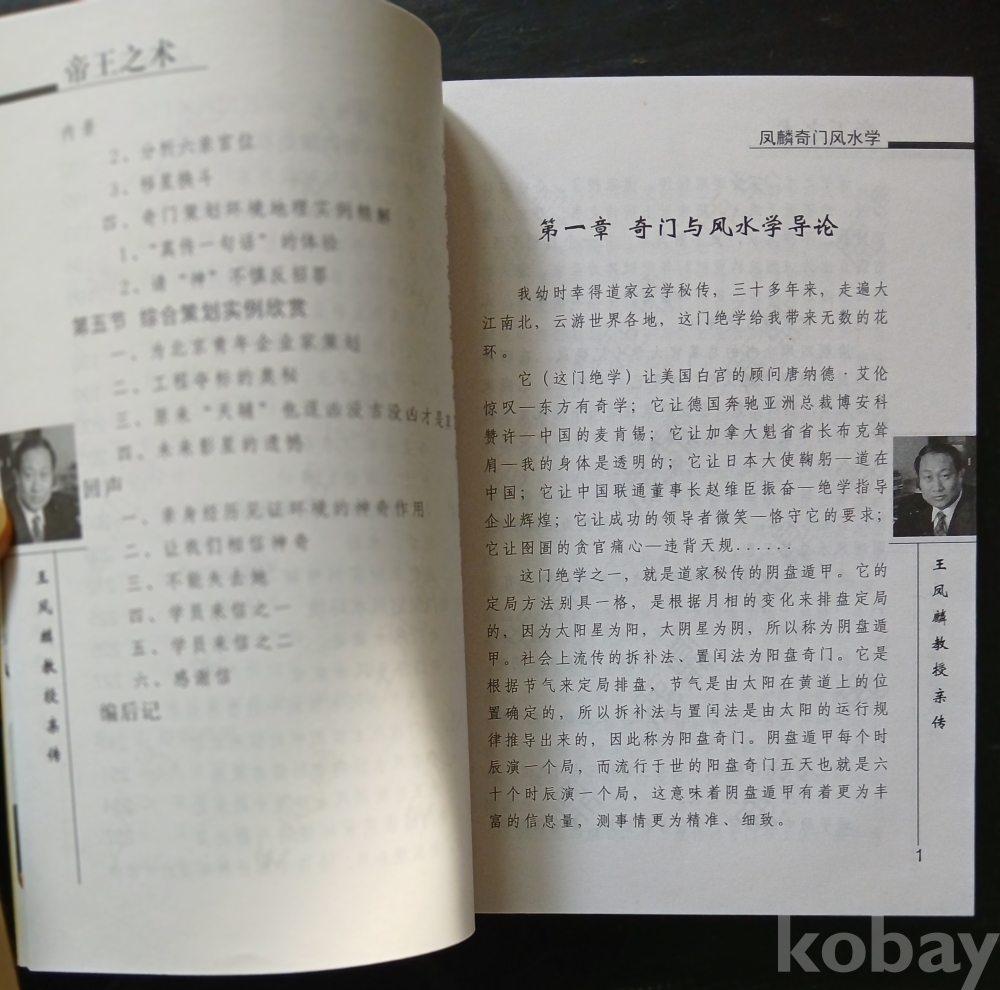 帝王之术
内景
2、分析六亲宫位
3、移星换斗
四、奇门策划环境地理实例精解
1、“真传一句话”的体验
2、请“神”不慎反招罪
第五节 综合策划实例欣赏
一、为北京青年企业家策划
二、工程夺标的奥秘
三、原来“天辅”也逞凶没吉没凶才是
四、未来影星的遗憾
回声
一、亲身经历见证环境的神奇作用
二、让我们相信神奇
三、不能失去她
四、学员来信之一
五、学员来信之二
六、感谢信
编后记
王凤麟教授亲传
凤麟奇门风水学
第一章 奇门与风水学导论
我幼时幸得道家玄学秘传，三十多年来，走遍大
江南北，云游世界各地，这门绝学给我带来无数的花
环。
它（这门绝学）让美国白宫的顾问唐纳德·艾伦
惊叹—东方有奇学；它让德国奔驰亚洲总裁博安科
赞许—中国的麦肯锡；它让加拿大魁省省长布克耸
肩—我的身体是透明的；它让日本大使鞠躬—道在
中国；它让中国联通董事长赵维臣振奋—绝学指导
企业辉煌；它让成功的领导者微笑—恪守它的要求；
它让图圄的贪官痛心—违背天规......
这门绝学之一，就是道家秘传的阴盘遁甲。它的
定局方法别具一格，是根据月相的变化来排盘定局
的，因为太阳星为阳，太阴星为阴，所以称为阴盘遁
甲。社会上流传的拆补法、置闰法为阳盘奇门。它是
根据节气来定局排盘，节气是由太阳在黄道上的位
置确定的，所以拆补法与置闰法是由太阳的运行规
律推导出来的，因此称为阳盘奇门。阴盘遁甲每个时
辰演一个局，而流行于世的阳盘奇门五天也就是六
十个时辰演一个局，这意味着阴盘遁甲有着更为丰
富的信息量，测事情更为精准、细致。
王凤麟教授亲传
1
kobay